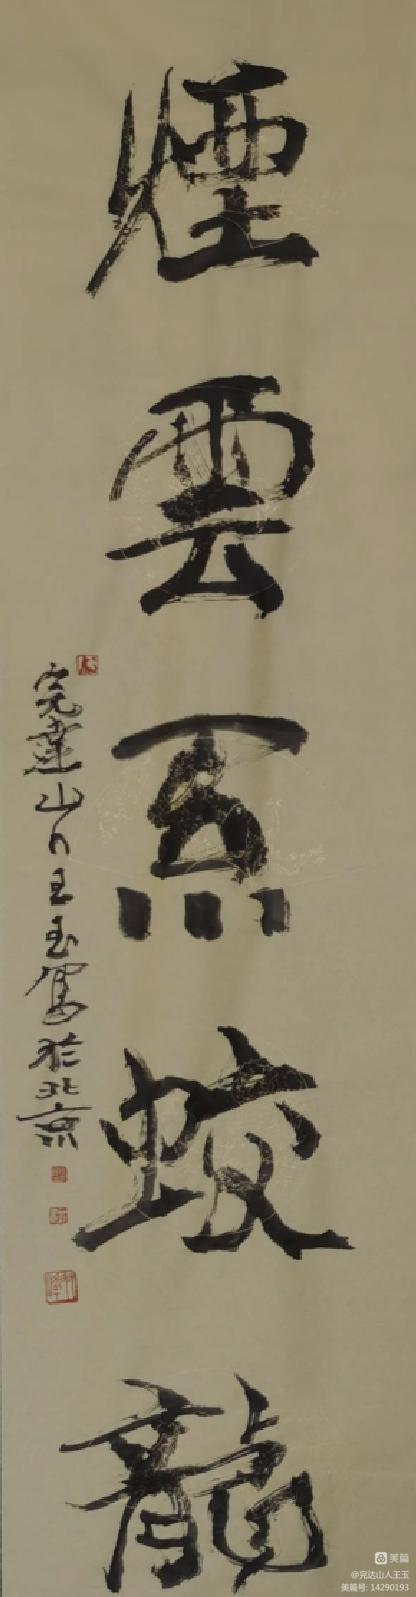 煙雲蛟龍
完達山人王玉寫於北京
美篇
@完达山人王玉
美篇号: 14290193